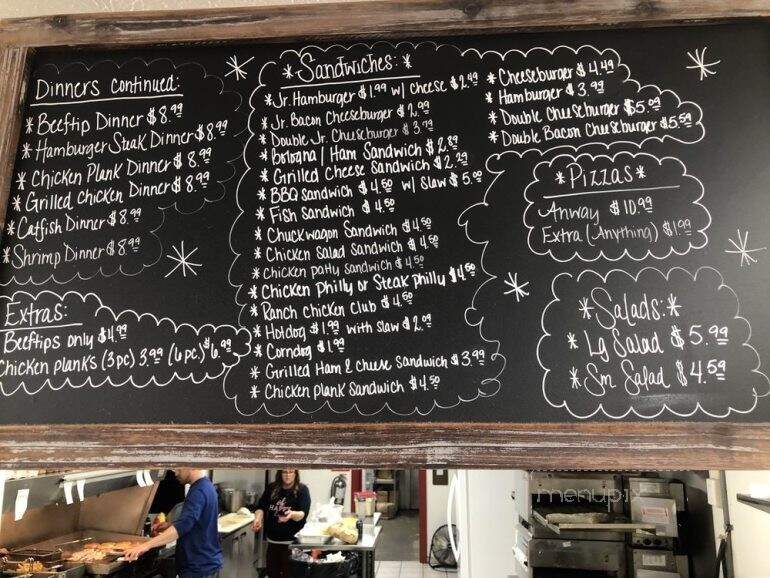 Dinners continued:
* Beeftip Dinner $8.99
* Hamburger Steak Dinner $8.99
* Chicken Plank Dinner $8.99
* Grilled Chicken Dinner $8.99
* Catfish Dinner $8.99
* Shrimp Dinner $8.99
Extras:
Beeftips only $4.99
Chicken planks (3pc) 3.99 (6pc) $6.99
* Sandwiches: *
* Jr. Hamburger $1.99 w/ cheese $2.49
* Jr. Bacon Cheeseburger $2.99
* Double Jr. Cheeseburger $3.99
* Bologna / Ham Sandwich $2.89
* Grilled Cheese Sandwich $2.29
* BBQ sandwich $4.50 w/ slaw $5.00
* Fish sandwich $4.50
* Chuckwagon Sandwich $4.50
* Chicken Salad Sandwich $4.50
* Chicken patty Sandwich $4.50
* Chicken Philly or Steak philly $4.50
* Ranch chicken club $4.50
* Hotdog $1.99 with slaw $2.09
* Corndog $1.99
* Grilled Ham & cheese Sandwich $3.99
* Chicken Plank Sandwich $4.50
* Cheeseburger $4.49
* Hamburger $3.99
* Double Cheeseburger $5.09
* Double Bacon Cheeseburger $5.59
* Pizzas *
Anyway $10.99
Extra (Anything) $1.99
* Salads: *
* Lg Salad $5.99
* Sm Salad $4.59
menupix